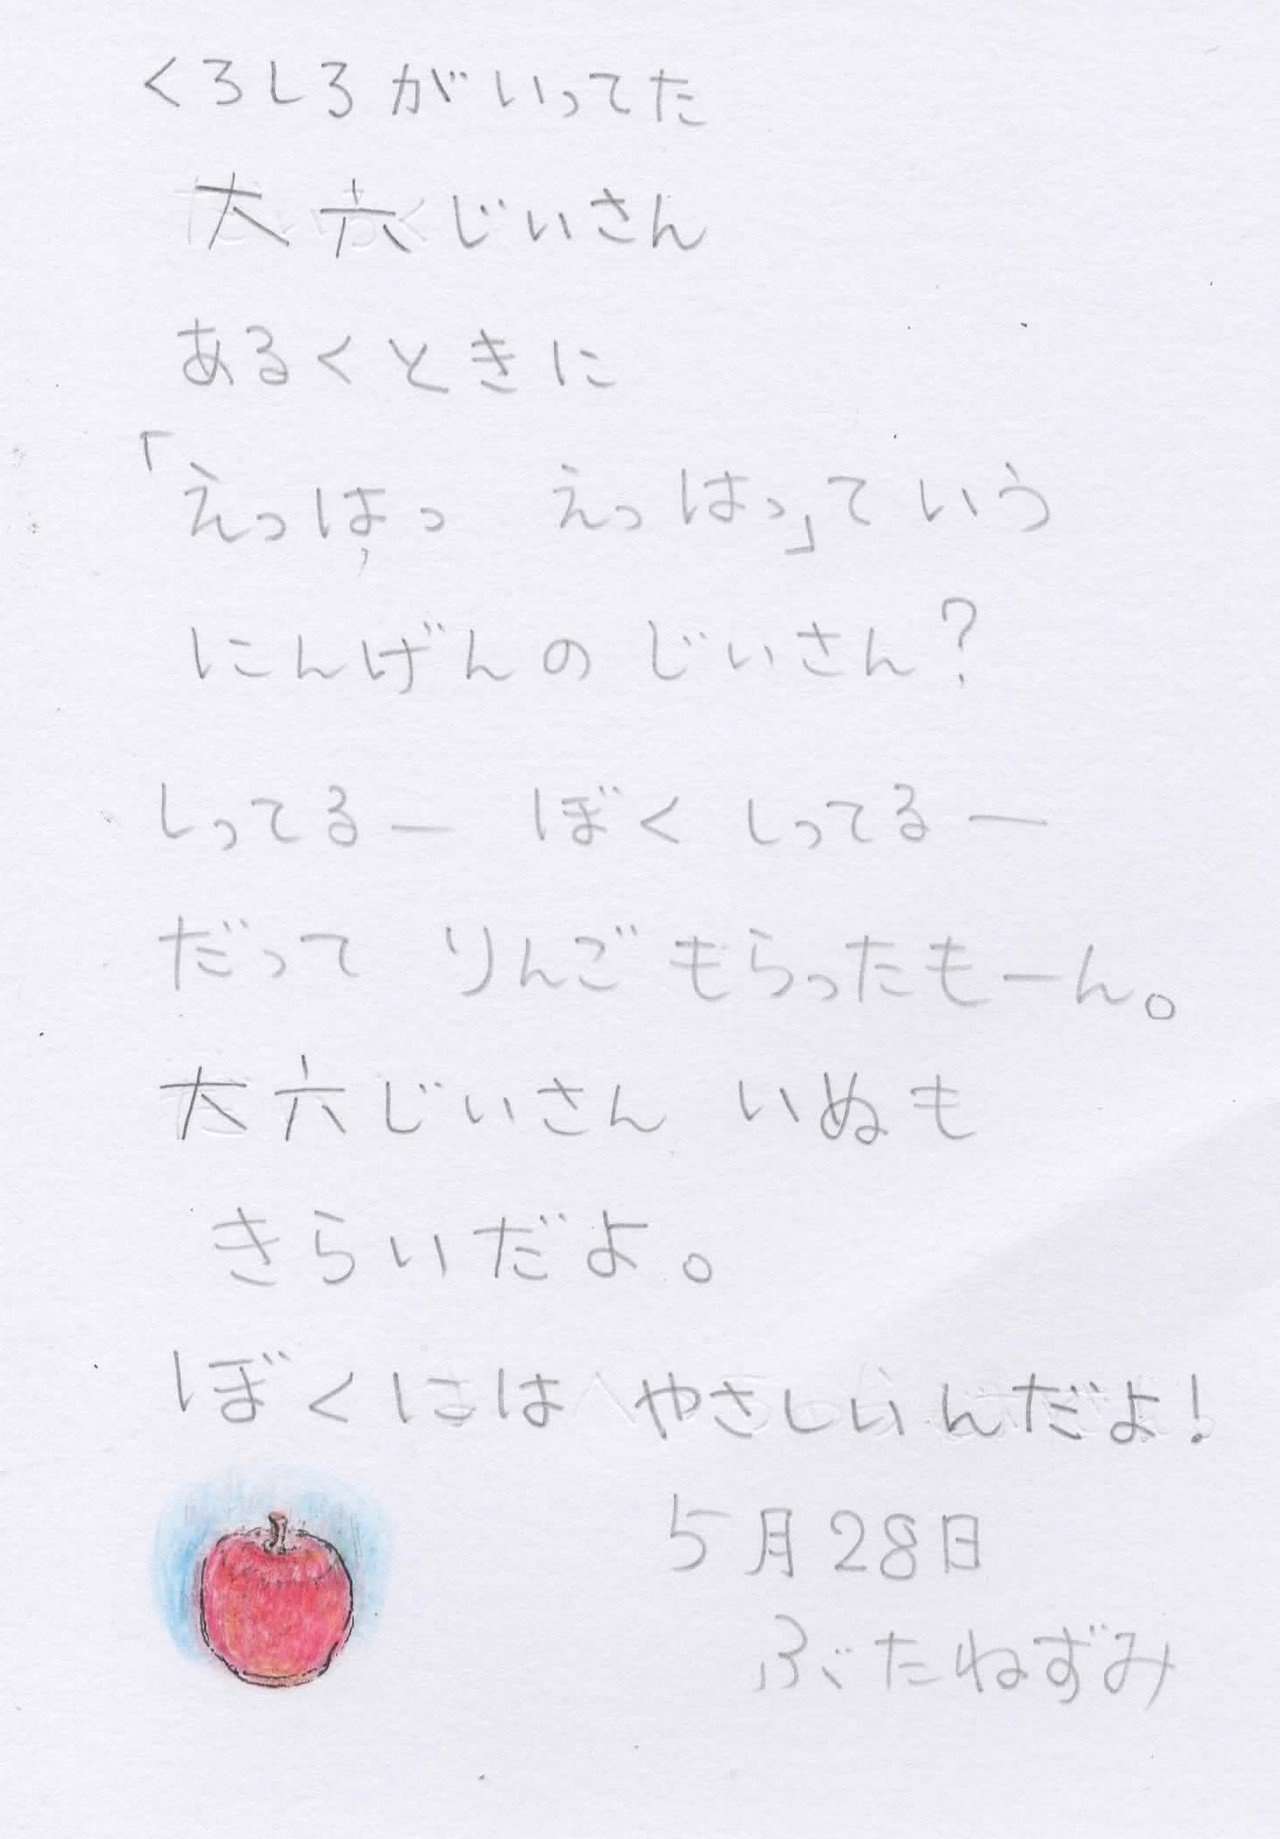 くろしろがいってた
大六じいさん
あるくときに
「えっはっ　えっはっ」ていう
にんげんの じいさん?
しってるー　ぼく しってるー
だって りんご もらったもーん。
大六じいさん いぬも
きらいだよ。
ぼくには やさしいんだよ!
5月28日
ぶたねずみ